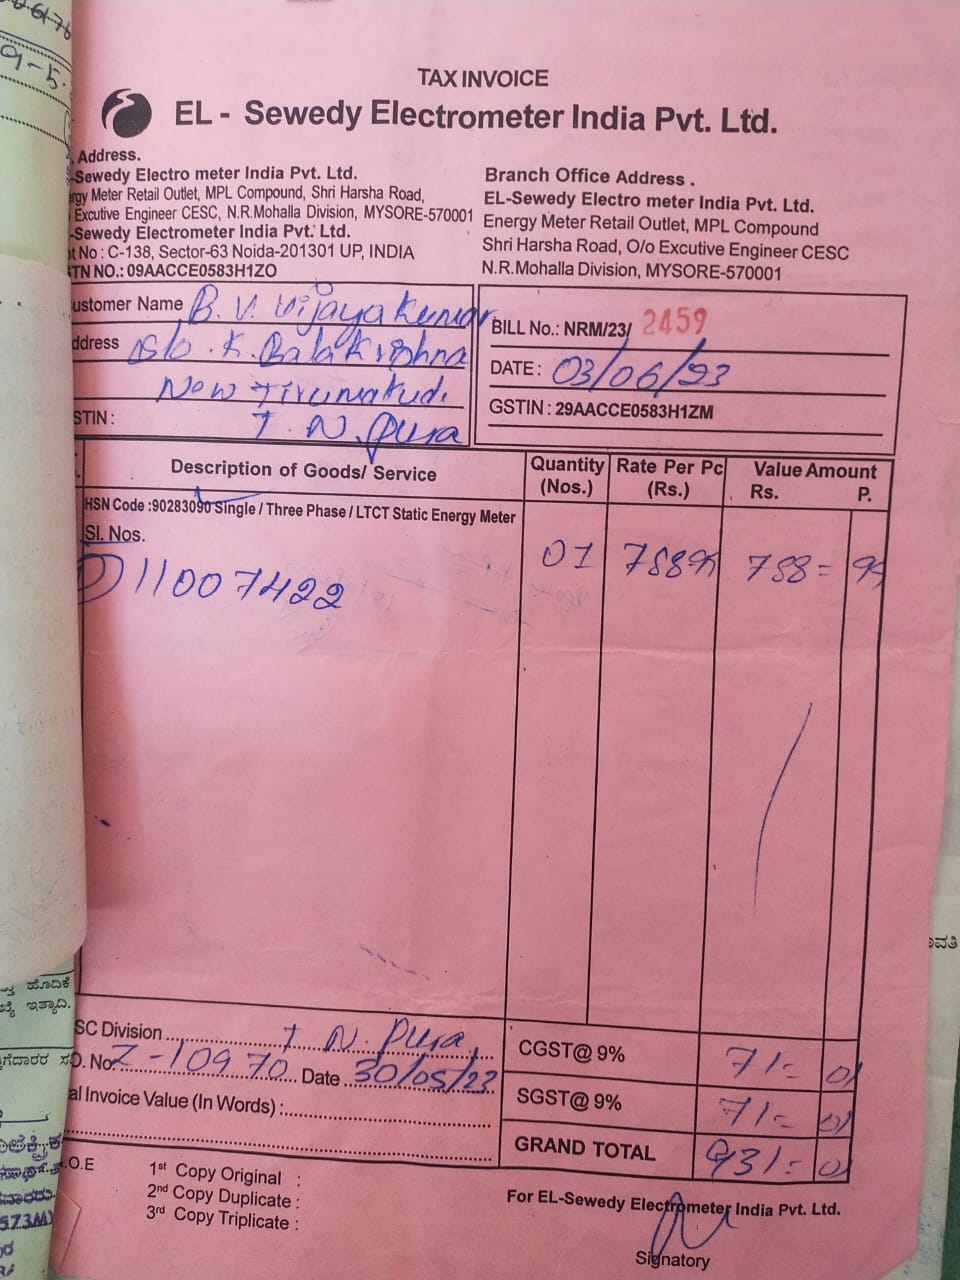 TAX INVOICE
EL - Sewedy Electrometer India Pvt. Ltd.
. Address.
-Sewedy Electro meter India Pvt. Ltd.
rgy Meter Retail Outlet, MPL Compound, Shri Harsha Road,
Excutive Engineer CESC, N.R.Mohalla Division, MYSORE-570001
-Sewedy Electrometer India Pvt. Ltd.
t No : C-138, Sector-63 Noida-201301 UP, INDIA
TN NO.: 09AACCE0583H1ZO
Branch Office Address .
EL-Sewedy Electro meter India Pvt. Ltd.
Energy Meter Retail Outlet, MPL Compound
Shri Harsha Road, O/o Excutive Engineer CESC
N.R.Mohalla Division, MYSORE-570001
ustomer Name B. V. Vijaya Kumar
ddress S/o . K. Bala Krishna
New Tirumakudl
STIN : T. N. Pura
BILL No.: NRM/23/ 2459
DATE : 03/06/23
GSTIN : 29AACCE0583H1ZM
Description of Goods/ Service
Quantity (Nos.)
Rate Per Pc (Rs.)
Value Amount
Rs. P.
HSN Code :90283090 Single / Three Phase / LTCT Static Energy Meter
Sl. Nos.
1) 11007422 01 78899 788= 99
SC Division T N. Pura
O. No Z-10970 Date 30/05/23
al Invoice Value (In Words) :
CGST@ 9% 71/= 01
SGST@ 9% 71/= 01
GRAND TOTAL 931/= 01
.O.E
1st Copy Original :
2nd Copy Duplicate :
3rd Copy Triplicate :
For EL-Sewedy Electrometer India Pvt. Ltd.
Signatory
ಹೊದಿಕೆ
ಇತ್ಯಾದಿ.